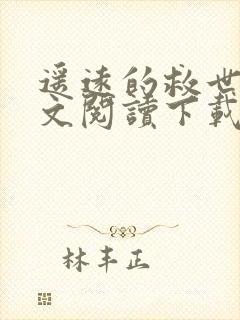 遥遠的救世
文閱讀下載
林丰正